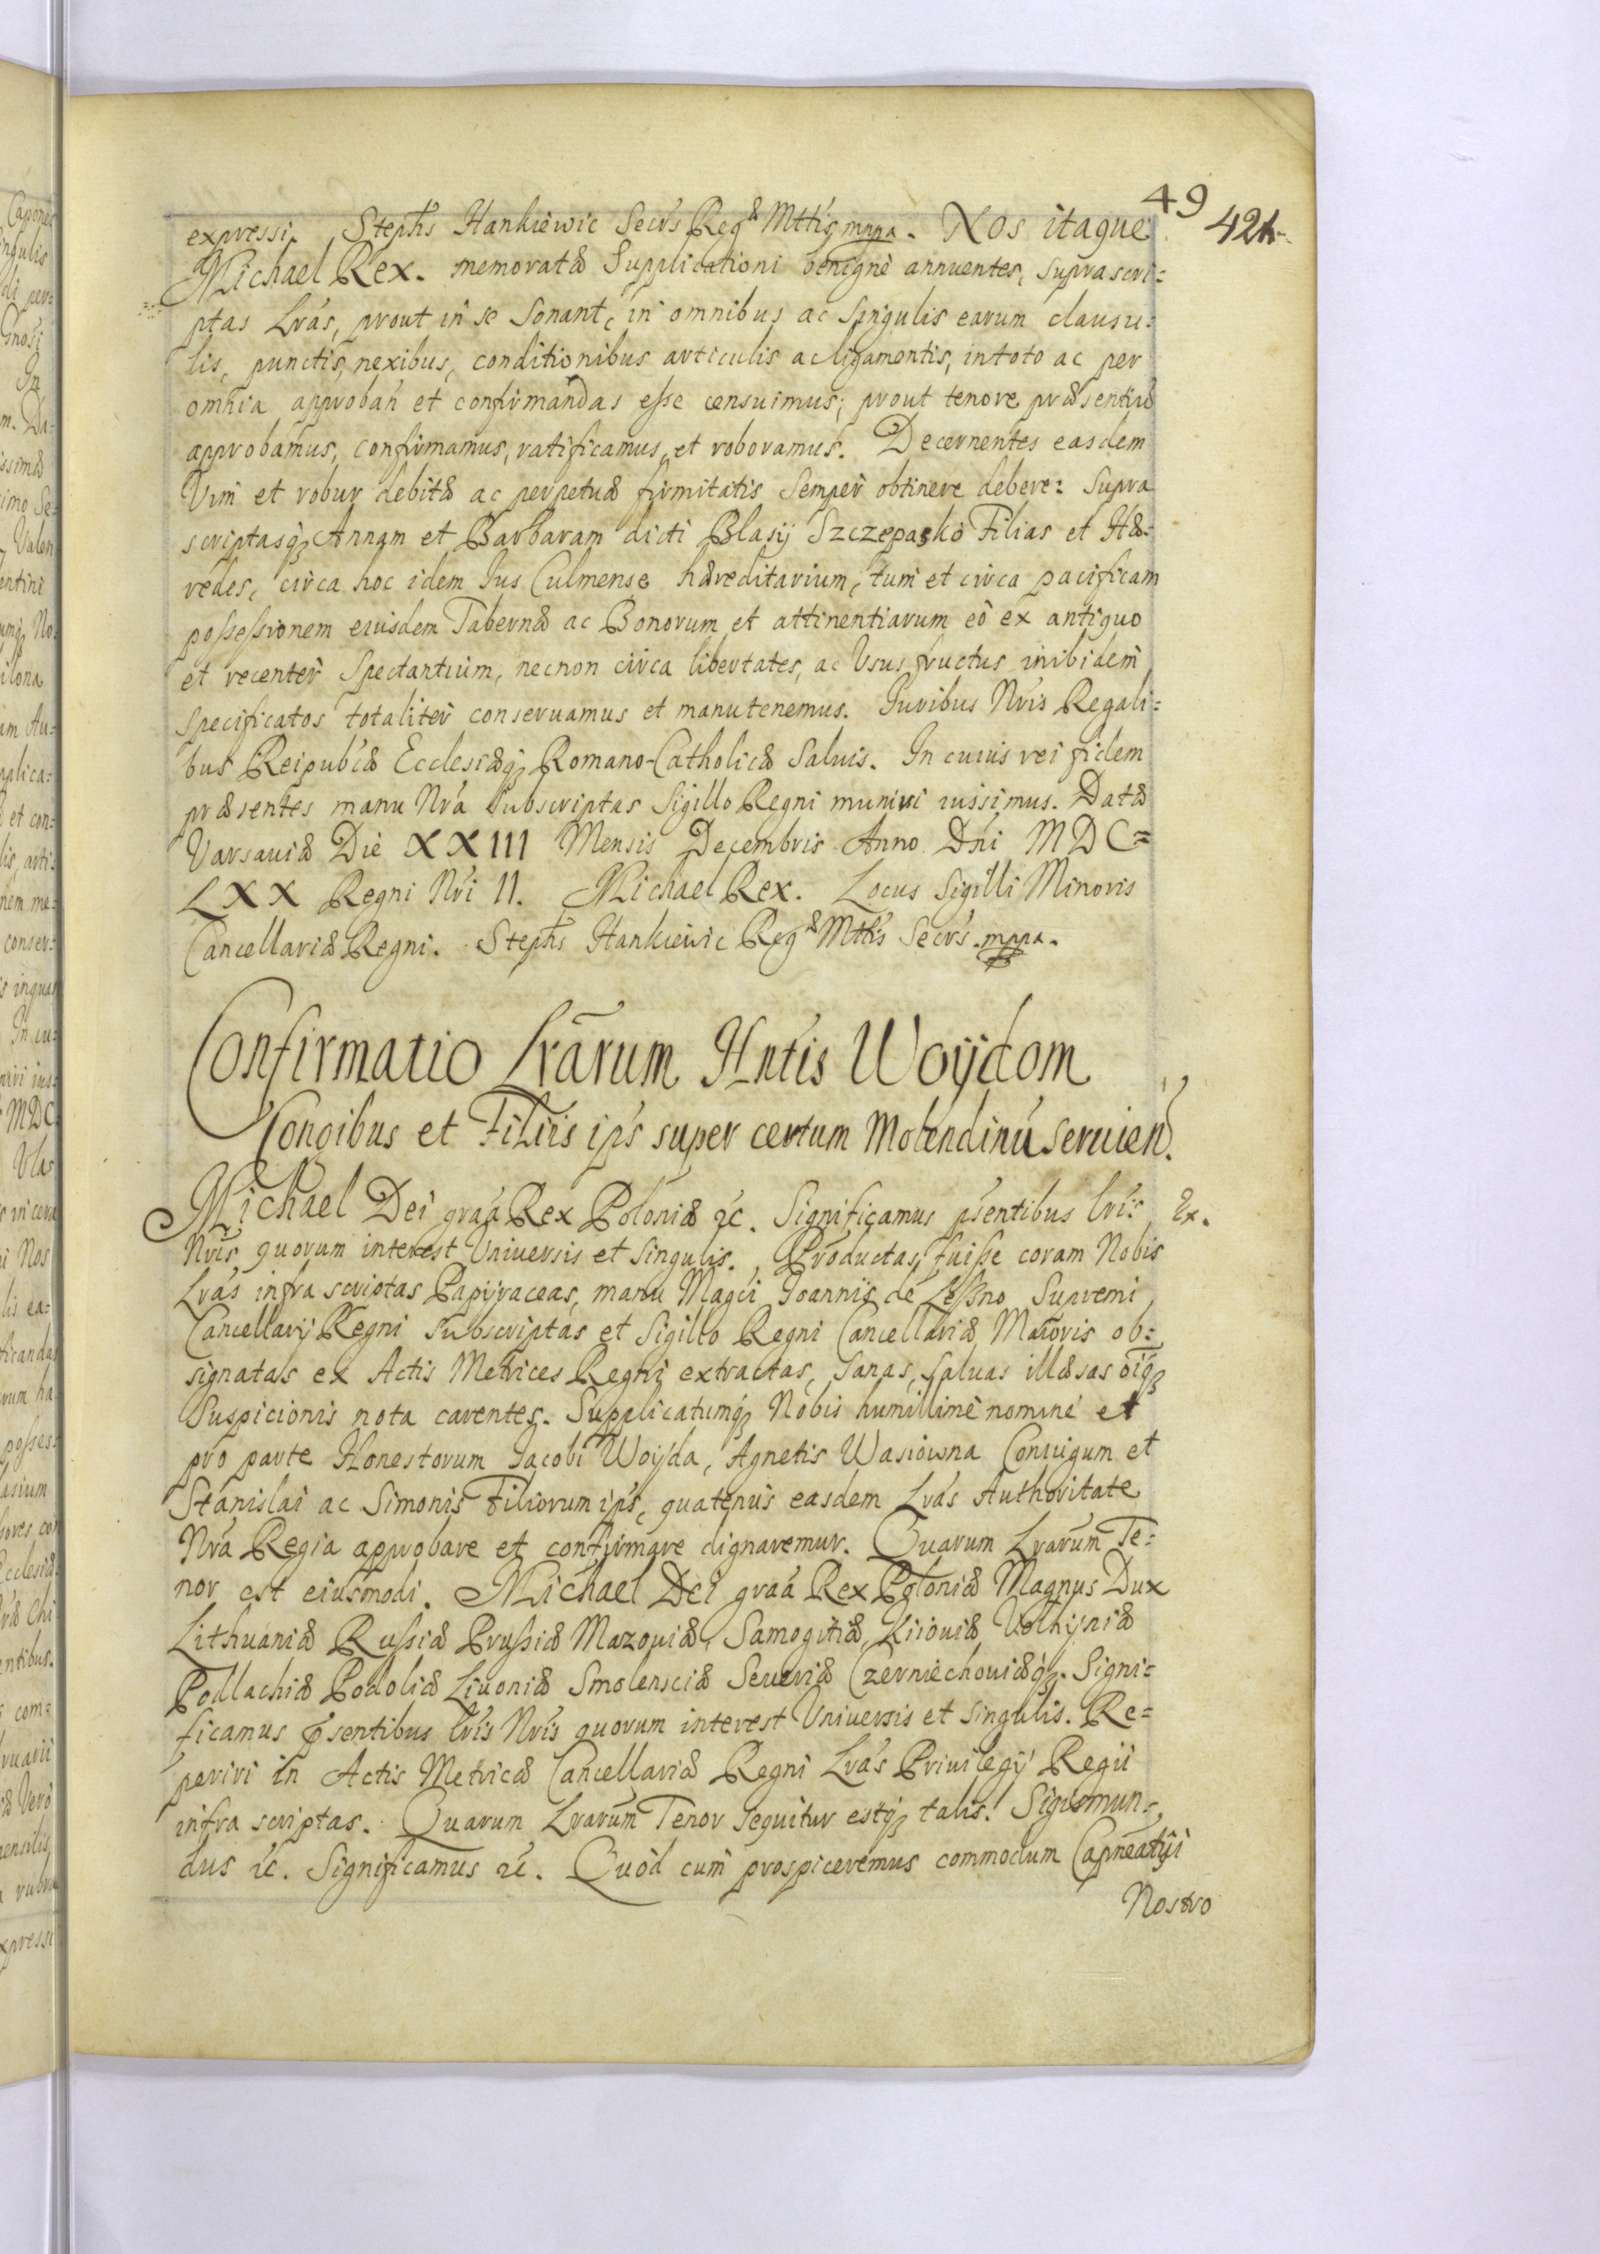 49
421.
expressi. Stephs Hankiewic Secrs Regæ Mttis mppa. Nos itaque
Michael Rex. memoratæ Supplicationi benignè annuentes, suprascri=
ptas Lrás, prout in se Sonant, in omnibus ac Singulis earum clausu=
lis, punctis, nexibus, conditionibus articulis ac ligamentis, in toto ac per
omnia approbań et confirmandas esse censuimus; prout tenore præsentiũ
approbamus, confirmamus, ratificamus, et roboramus. Decernentes easdem
Vim et robur debitæ ac perpetuæ firmitatis Semper obtinere debere: Supra
scriptasq; Annam et Barbaram dicti Blasij Szczepasko Filias et Hæ=
redes, circa hoc idem Ius Culmense hæreditarium, tum et circa pacificam
possessionem eiusdem Tabernæ ac Bonorum et attinentiarum eò ex antiquo
et recenter Spectantium, necnon circa libertates, ac Vsus fructus inibidem
Specificatos totaliter conseruamus et manutenemus. Iuribus Nris Regali=
bus Reipubcæ Ecclesiæq; Romano-Catholicæ Saluis. In cuius rei fidem
præsentes manu Nrá Subscriptas Sigillo Regni muniri iussimus. Datæ
Varsauiæ Die XXIII Mensis Decembris Anno Dñi MDC=
LXX Regni Nri II. Michael Rex. Locus Sigilli Minoris
Cancellariæ Regni. Stephs Hankiewic Regæ Mttis Secrs. mppa.
Confirmatio Lrarum Hntis Woijdom
Congibus et Filiis ips super certum Molendinũ seruień.
Michael Dei graá Rex Poloniæ &c. Significamus psentibus lris Ex.
Nris quorum interest Vniuersis et Singulis. Productas fuisse coram Nobis
Lrás infra scriptas Papijraceas, manu Magci Joannis de Leßno Supremi
Cancellarij Regni Subscriptas et Sigillo Regni Cancellariæ Maioris ob=
signatas ex Actis Metrices Regni extractas, Sanas, Saluas illæsas oiq;
Suspicionis nota carentes. Supplicatumq; Nobis humillimè nominé et
pro parte Honestorum Jacobi Woijda, Agnetis Wasiowna Coniugum et
Stanislai ac Simonis Filiorum ips, quatenus easdem Lrás Authoritate
Nrá Regia approbare et confirmare dignaremur. Quarum Lrarum Te=
nor est eiusmodi. Michael Dei graá Rex Poloniæ Magnus Dux
Lithuaniæ Russiæ Prussiæ Mazouiæ, Samogitiæ, Kiiouiæ Volhijniæ
Podlachiæ Podoliæ Liuoniæ Smolensciæ Seueriæ Czerniechouiæq;. Signi=
ficamus psentibus lris Nris quorum interest Vniuersis et Singulis. Re=
periri in Actis Metricæ Cancellariæ Regni Lrás Priuilegij Regii
infra scriptas. Quarum Lrarum Tenor sequitur estq; talis. Sigismun=
dus &c. Significamus &c. Quòd cum prospiceremus commodum Capneatiji
Nostro